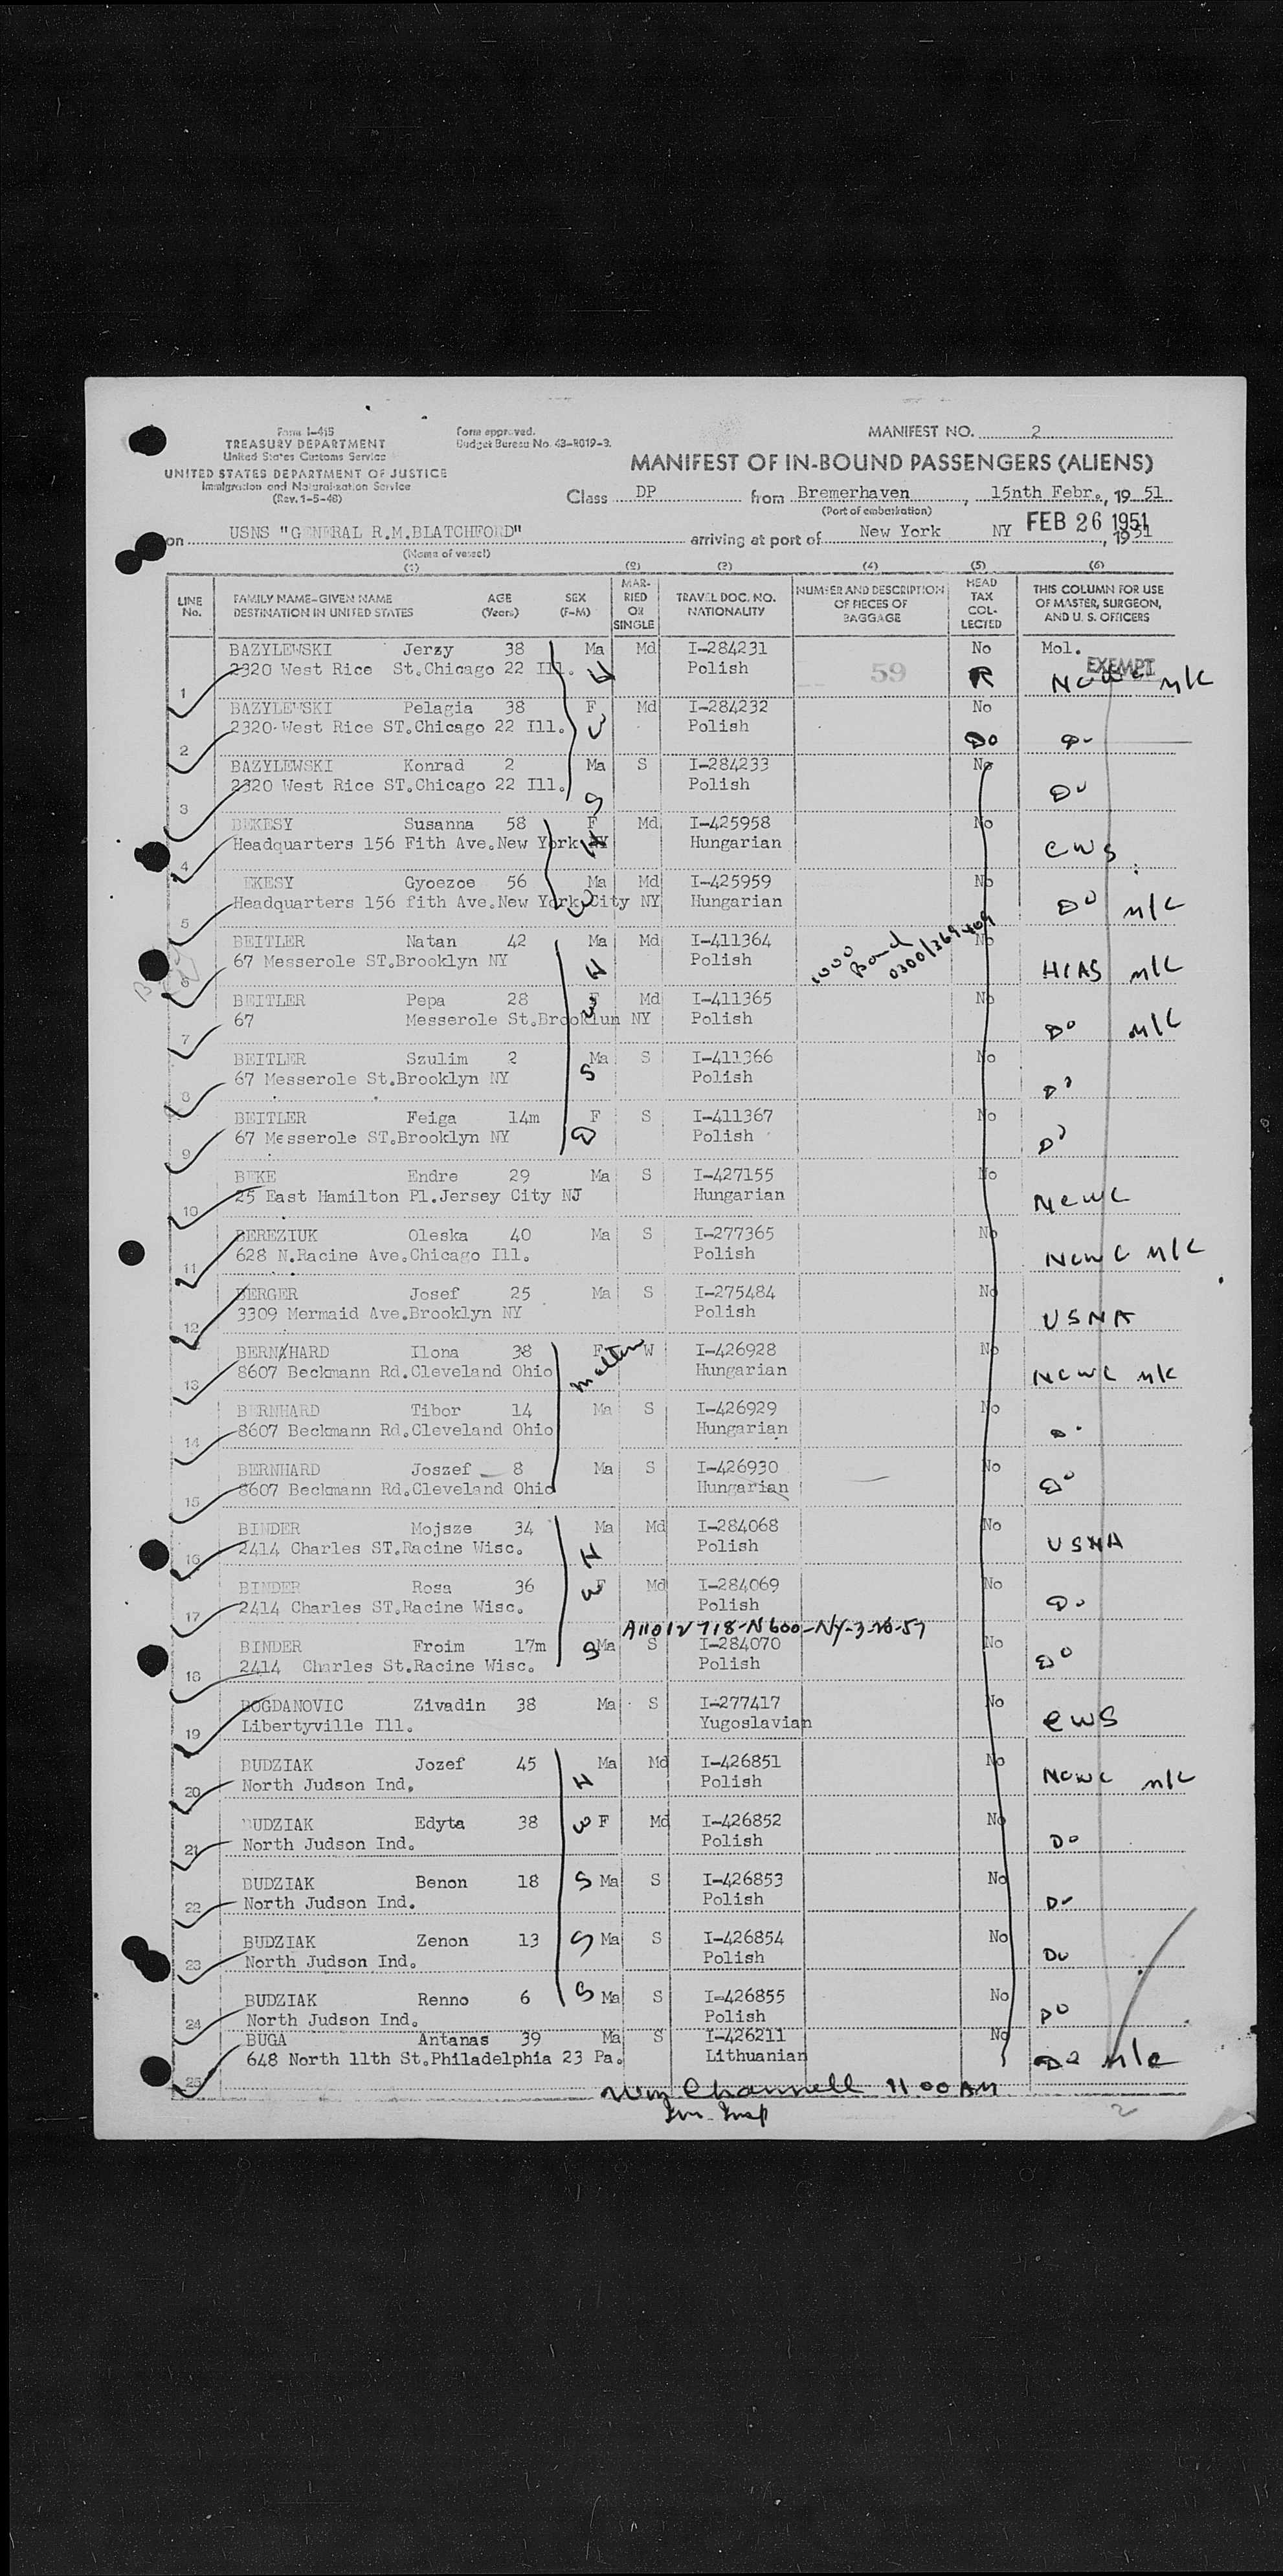 Form I-415
TREASURY DEPARTMENT
United States Customs Service
UNITED STATES DEPARTMENT OF JUSTICE
Immigration and Naturalization Service
(Rev. 1-5-48)
Form approved.
Budget Bureau No. 43-R019-3.
MANIFEST NO. 2
MANIFEST OF IN-BOUND PASSENGERS (ALIENS)
Class DP from Bremerhaven, 15nth Febr., 19 51
(Port of embarkation)
on USNS "GENERAL R.M.BLATCHFORD" arriving at port of New York NY FEB 26 1951, 1951
(Name of vessel)
(1) (2) (3) (4) (5) (6)
LINE No. FAMILY NAME-GIVEN NAME DESTINATION IN UNITED STATES AGE (Years) SEX (F-M) MARRIED OR SINGLE TRAVEL DOC. NO. NATIONALITY NUMBER AND DESCRIPTION OF PIECES OF BAGGAGE HEAD TAX COLLECTED THIS COLUMN FOR USE OF MASTER, SURGEON, AND U. S. OFFICERS
BAZYLEWSKI Jerzy 38 Ma Md I-284231 No Mol.
1 2320 West Rice St.Chicago 22 Ill. H Polish 59 R EXEMPT NCWC M/C
BAZYLEWSKI Pelagia 38 F Md I-284232 No
2 2320 West Rice ST.Chicago 22 Ill. W Polish Do Do
BAZYLEWSKI Konrad 2 Ma S I-284233 No
3 2320 West Rice ST.Chicago 22 Ill. S Polish Do
BEKESY Susanna 58 F Md I-425958 No
4 Headquarters 156 Fith Ave.New York NY Hungarian CWS
EKESY Gyoezoe 56 Ma Md I-425959 No
5 Headquarters 156 fith Ave.New York City NY Hungarian Do M/C
BEITLER Natan 42 Ma Md I-411364 1000 Bond No
6 67 Messerole ST.Brooklyn NY H Polish HIAS M/C
BEITLER Pepa 28 F Md I-411365 No
7 67 Messerole St.Brooklun NY Polish Do M/C
BEITLER Szulim 2 Ma S I-411366 No
8 67 Messerole St.Brooklyn NY S Polish Do
BEITLER Feiga 14m F S I-411367 No
9 67 Messerole ST.Brooklyn NY D Polish Do
BEKE Endre 29 Ma S I-427155 No
10 25 East Hamilton Pl.Jersey City NJ Hungarian NCWC
BEREZIUK Oleska 40 Ma S I-277365 No
11 628 N.Racine Ave.Chicago Ill. Polish NCWC M/C
BERGER Josef 25 Ma S I-275484 No
12 3309 Mermaid Ave.Brooklyn NY Polish USNA
BERNHARD Ilona 38 F W I-426928 No
13 8607 Beckmann Rd.Cleveland Ohio Mother Hungarian NCWC M/C
BERNHARD Tibor 14 Ma S I-426929 No
14 8607 Beckmann Rd.Cleveland Ohio Hungarian Do
BERNHARD Joszef 8 Ma S I-426930 No
15 8607 Beckmann Rd.Cleveland Ohio Hungarian Do
BINDER Mojsze 34 Ma Md I-284068 No
16 2414 Charles ST.Racine Wisc. H Polish USNA
BINDER Rosa 36 F Md I-284069 No
17 2414 Charles ST.Racine Wisc. W Polish Do
BINDER Froim 17m S Ma S I-284070 No
18 2414 Charles St.Racine Wisc. Polish Do
BOGDANOVIC Zivadin 38 Ma S I-277417 No
19 Libertyville Ill. Yugoslavian CWS
BUDZIAK Jozef 45 Ma Md I-426851 No
20 North Judson Ind. H Polish NCWC M/C
BUDZIAK Edyta 38 W F Md I-426852 No
21 North Judson Ind. Polish Do
BUDZIAK Benon 18 S Ma S I-426853 No
22 North Judson Ind. Polish Do
BUDZIAK Zenon 13 S Ma S I-426854 No
23 North Judson Ind. Polish Do
BUDZIAK Renno 6 S Ma S I-426855 No
24 North Judson Ind. Polish Do
BUGA Antanas 39 Ma S I-426211 No
25 648 North 11th St.Philadelphia 23 Pa. Lithuanian Do M/C
Wm Channell 11 00 AM
Imm. Insp
2